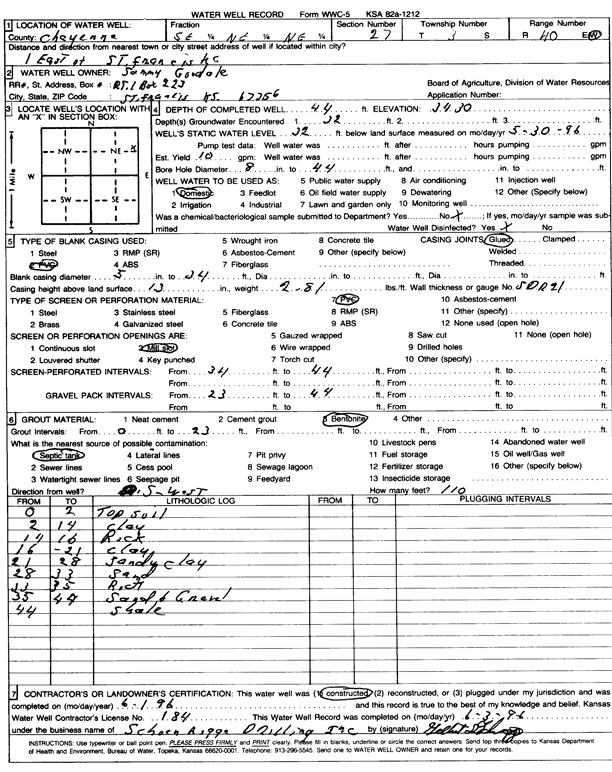 WATER WELL RECORD Form WWC-5 KSA 82a-1212
1 LOCATION OF WATER WELL: Fraction Section Number Township Number Range Number
County: Cheyenne SE ¼ NE ¼ NE ¼ 27 T 3 S R 40 E/W
Distance and direction from nearest town or city street address of well if located within city?
1 East of St. Francis KS
2 WATER WELL OWNER: Sammy
RR#, St. Address, Box # : Rt. 1 Box 223 Board of Agriculture, Division of Water Resources
City, State, ZIP Code : St. Francis KS. 67756 Application Number:
3 LOCATE WELL'S LOCATION WITH AN "X" IN SECTION BOX:
N
NW NE X
W E
SW SE
S
1 Mile
4 DEPTH OF COMPLETED WELL 44 ft. ELEVATION: 3430
Depth(s) Groundwater Encountered 1. 32 ft. 2. ft. 3. ft.
WELL'S STATIC WATER LEVEL 32 ft. below land surface measured on mo/day/yr 5-30-96
Pump test data: Well water was ft. after hours pumping gpm
Est. Yield 10 gpm: Well water was ft. after hours pumping gpm
Bore Hole Diameter 8 in. to 44 ft., and in. to ft.
WELL WATER TO BE USED AS: 5 Public water supply 8 Air conditioning 11 Injection well
1 Domestic 3 Feedlot 6 Oil field water supply 9 Dewatering 12 Other (Specify below)
2 Irrigation 4 Industrial 7 Lawn and garden only 10 Monitoring well
Was a chemical/bacteriological sample submitted to Department? Yes No X ; If yes, mo/day/yr sample was submitted Water Well Disinfected? Yes X No
5 TYPE OF BLANK CASING USED: 5 Wrought iron 8 Concrete tile CASING JOINTS: Glued Clamped
1 Steel 3 RMP (SR) 6 Asbestos-Cement 9 Other (specify below) Welded
2 PVC 4 ABS 7 Fiberglass Threaded
Blank casing diameter 5 in. to 34 ft., Dia in. to ft., Dia in. to ft.
Casing height above land surface 13 in., weight 2-81 lbs./ft. Wall thickness or gauge No. SDR21
TYPE OF SCREEN OR PERFORATION MATERIAL: 7 PVC 10 Asbestos-cement
1 Steel 3 Stainless steel 5 Fiberglass 8 RMP (SR) 11 Other (specify)
2 Brass 4 Galvanized steel 6 Concrete tile 9 ABS 12 None used (open hole)
SCREEN OR PERFORATION OPENINGS ARE: 5 Gauzed wrapped 8 Saw cut 11 None (open hole)
1 Continuous slot 3 Mill slot 6 Wire wrapped 9 Drilled holes
2 Louvered shutter 4 Key punched 7 Torch cut 10 Other (specify)
SCREEN-PERFORATED INTERVALS: From 34 ft. to 44 ft., From ft. to ft.
From ft. to ft., From ft. to ft.
GRAVEL PACK INTERVALS: From 23 ft. to 44 ft., From ft. to ft.
From ft. to ft., From ft. to ft.
6 GROUT MATERIAL: 1 Neat cement 2 Cement grout 3 Bentonite 4 Other
Grout Intervals: From 0 ft. to 23 ft., From ft. to ft., From ft. to ft.
What is the nearest source of possible contamination: 10 Livestock pens 14 Abandoned water well
1 Septic tank 4 Lateral lines 7 Pit privy 11 Fuel storage 15 Oil well/Gas well
2 Sewer lines 5 Cess pool 8 Sewage lagoon 12 Fertilizer storage 16 Other (specify below)
3 Watertight sewer lines 6 Seepage pit 9 Feedyard 13 Insecticide storage
Direction from well? S-West How many feet? 110
FROM TO LITHOLOGIC LOG FROM TO PLUGGING INTERVALS
0 2 Top soil
2 14 clay
14 16 Rock
16 -21 clay
21 28 Sandy clay
28 33 Sand
33 35 Rock
35 44 Sand & Gravel
44 Shale
7 CONTRACTOR'S OR LANDOWNER'S CERTIFICATION: This water well was (1) constructed, (2) reconstructed, or (3) plugged under my jurisdiction and was
completed on (mo/day/year) 6-1-96 and this record is true to the best of my knowledge and belief. Kansas
Water Well Contractor's License No. 184 This Water Well Record was completed on (mo/day/yr) 6-3-96
under the business name of Drilling Inc by (signature)
INSTRUCTIONS: Use typewriter or ball point pen. PLEASE PRESS FIRMLY and PRINT clearly. Please fill in blanks, underline or circle the correct answers. Send top three copies to Kansas Department
of Health and Environment, Bureau of Water, Topeka, Kansas 66620-0001. Telephone: 913-296-5545. Send one to WATER WELL OWNER and retain one for your records.